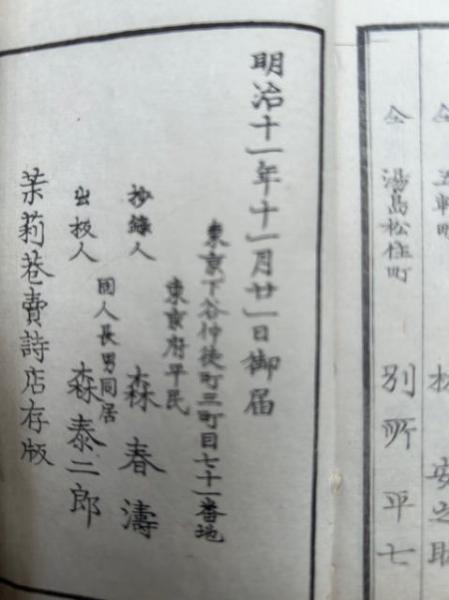 仝 五軒町 林 安之助
仝 湯島松住町 別所平七
明治十一年十一月廿一日御届
東京下谷仲徒町三町目七十一番地
東京府平民
抄錄人 森春濤
同人長男同居
出板人 森泰二郎
茉莉巷賣詩店存版